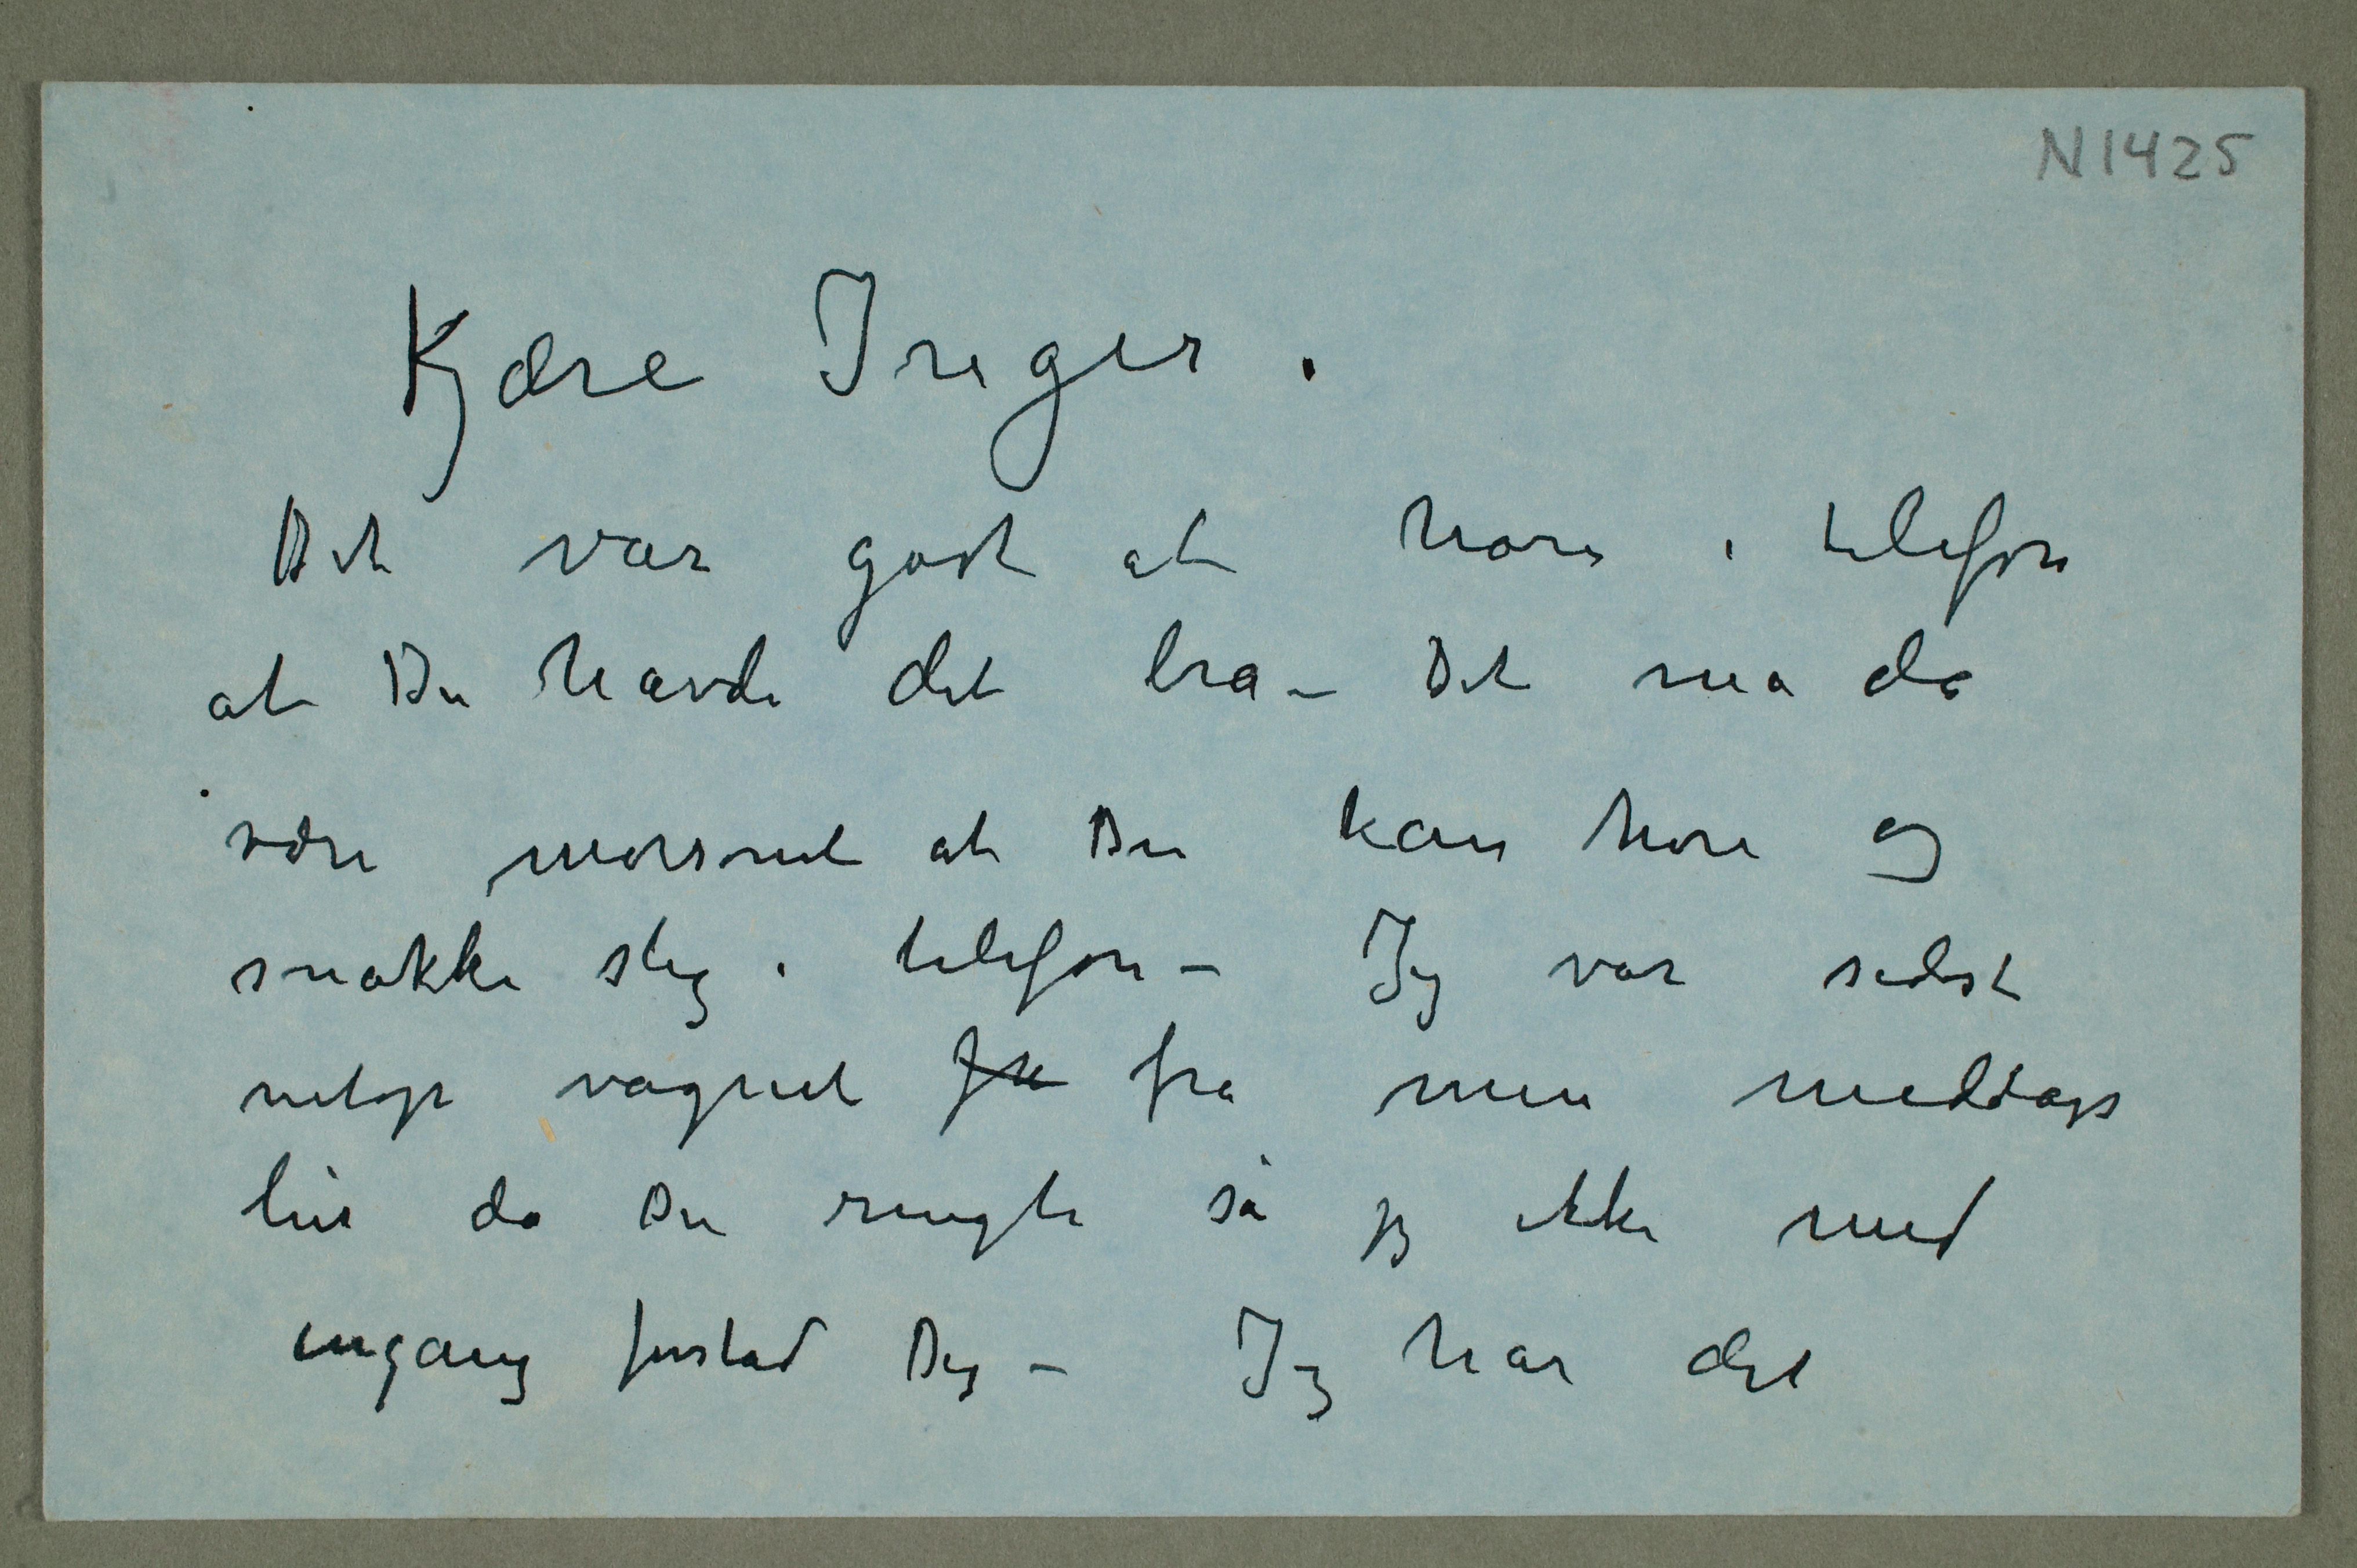 N1425
Kjære Inger.
Det var godt at høre i telefon
at Du havde det bra – Det må da
være morsomt at Du kan høre og
snakke slig i telefon – Jeg var sidst
netop vågnet fra fra min middags
lur da Du ringte så jeg ikke med
engang forstod Dig – Jeg har det